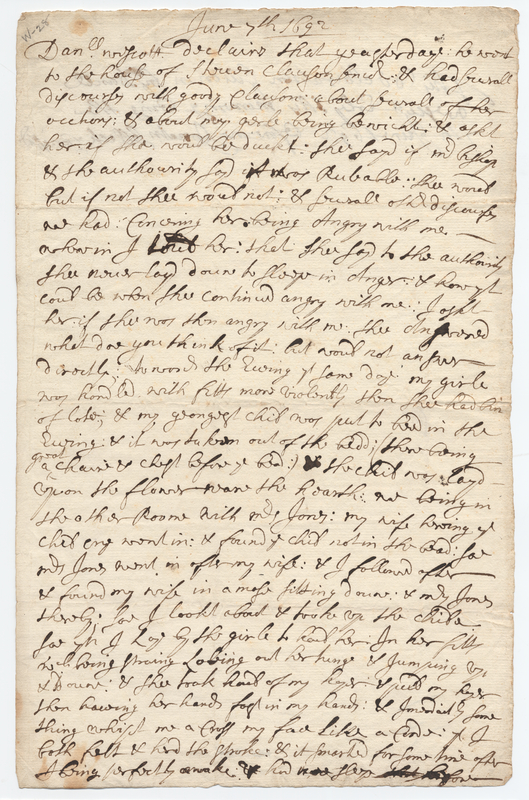 W-28
June 7th 1692
Danll wescott declairs that yeasterdaye: he went
to the house of Steven Clauson senir: & had severall
discourses with goody Clauson: about severall of her
actions: & about my gerle being bewicht: & askt
her: if she would be duckt: shee sayd if mr bishop
& the authourity sayd it was suitable: shee would
but if not shee would not: & severall other discourses
we had: Concerning her being Angry with me:
wherin I tould her: that shee sayd to the authority
shee never layd downe to sleepe in Anger: & how yt
could be when shee continued angry with me: I askt
her if shee was then angry with me: shee Answered
what doe you think of it: but would not answer
directly: towards the Evening ye same day: my girle
was handled with fitts more violently then shee had bin
of late; & my yeongest child was put to bed in the
Evening: & it was taken out of the bedd; there being
a great Chaire & Chest before ye bed:) & the child was layd
upon the flower neare the hearth: we being in
the other Roome with mrs Jones: my wife hereing ye
child crye went in: & found ye child not in the bead: soe
mrs Jones went in after my wife: & I followed after
& found my wife in a mase sitting downe: & mrs Jones
thereby: soe I lookt about & tooke up the childe
soe yn I Lay by the girle to hold her: In her fitts
being strong Loling out her tunge & Jumping up
& Downe: & shee took hould of my & puld my
then haveing her hands fast in my hands: & Imediatly some
thing whipt me a Cross my face Like a Corde: yt I
both felt & herd the stroke: & it smarted for some time after
I being perfectly awake: & had sleep before